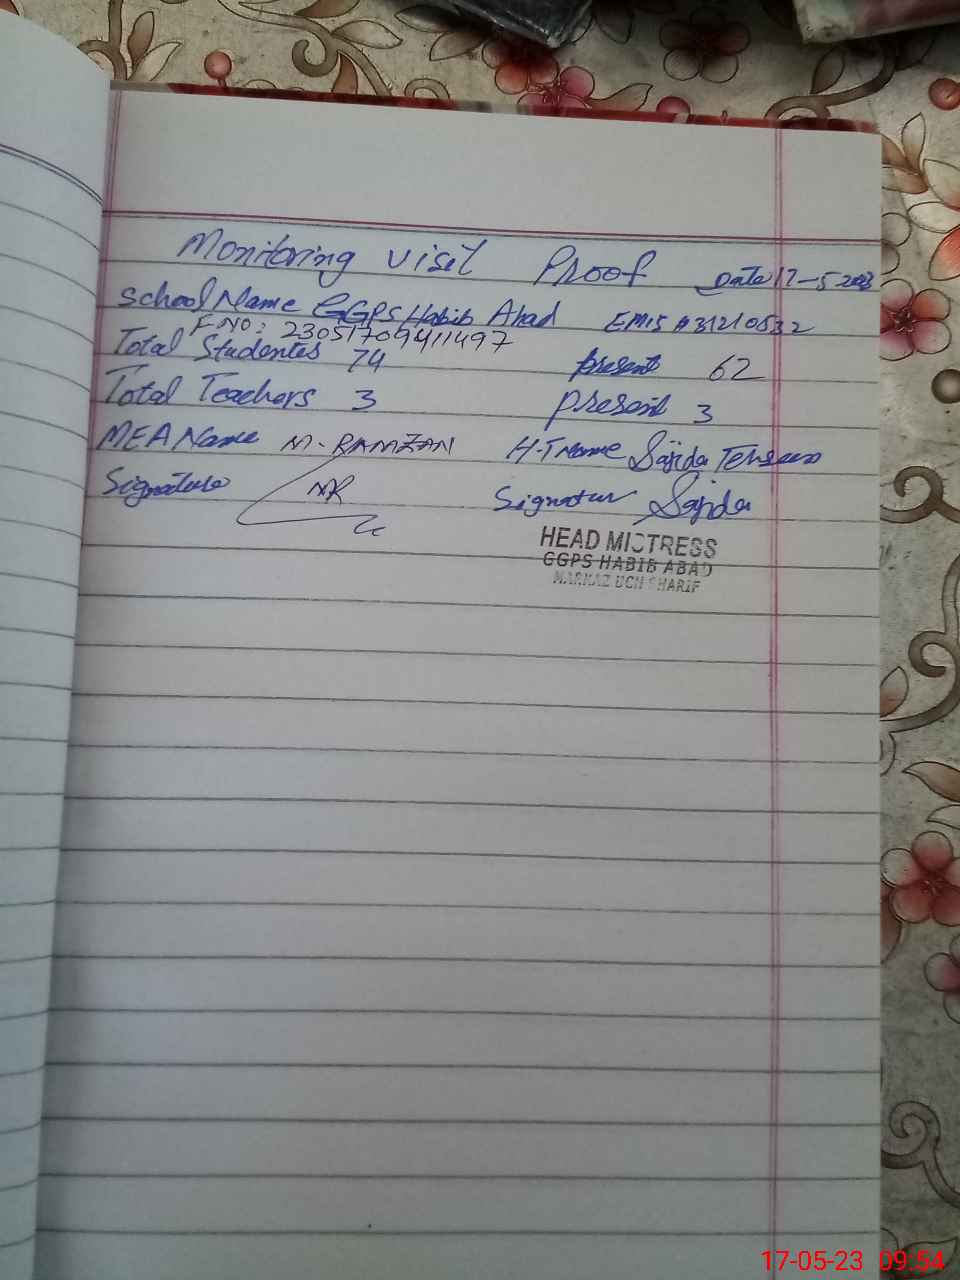 Monitoring visit Proof Date 17-5-2023
School Name GGPS Habib Abad EMIS # 31210532
F.NO: 23051709411497
Total Studentes 74 present 62
Total Teachers 3 present 3
MEA Name M. RAMZAN H.T Name Sajida
Signature MR Signatur Sajida
HEAD MISTRESS
GGPS HABIB ABAD
MARKAZ UCH SHARIF
17-05-23 09:54